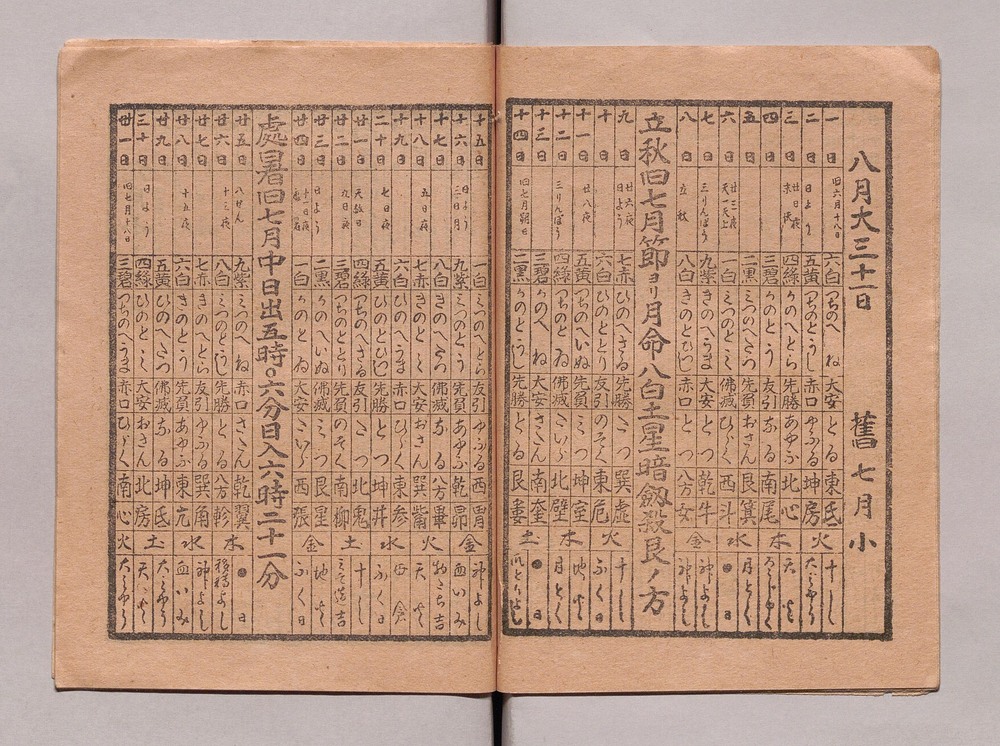 八月大三十一日 舊七月小
一日 旧六月十八日 六白 つちのへね 大安 とる 東 氐 十し
二日 日よう 五黄 つちのとうし 赤口 やふる 坤 房 火 大みやう
三日 廿日夜 末伏 四緑 かのへとら 先勝 あやふ 北 心 天火
四日 三碧 かのとう 友引 なる 南 尾 木
五日 二黒 みつのへたつ 先負 おさん 艮 箕 月とく
六日 廿三夜 天一天上 一白 みつのとミ 佛滅 ひらく 西 斗 ●日
七日 三りんぼう 九紫 きのへうま 大安 とつ 乾 牛 金 神よし
八日 立秋 八白 きのとひつし 赤口 とつ 八方 女 神よし
立秋旧七月節ヨリ月命八白土星暗劔殺艮ノ方
九日 廿六夜 日よう 七赤 ひのへさる 先勝 たつ 巽 虚 十し
十日 六白 ひのととり 友引 のそく 東 危 火 ふく日
十一日 廿八夜 五黄 つちのへいぬ 先負 みつ 坤 室 地火
十二日 三りんぼう 四緑 つちのとゐ 佛滅 たいら 北 壁 木 月とく
十三日 三碧 かのへね 大安 さたん 南 奎 ●日
十四日 旧七月朔日 二黒 かのとうし 先勝 とる 艮 婁 土 爪とりよし
十五日 一白 みつのへとら 友引 やふる 西 胃 神よし
十六日 日よう 三日月 九紫 みつのとう 先負 あやふ 乾 昴 金 血いみ
十七日 八白 きのへたつ 佛滅 なる 八方 畢 物たち吉
十八日 五日夜 七赤 きのとミ 大安 おさん 巽 觜 火 天火
十九日 六白 ひのへうま 先勝 ひらく 東 参 母倉
二十日 七日夜 五黄 ひのとひつし 先勝 とつ 坤 井 水 ふく日
廿一日 天赦日 四緑 つちのへさる 友引 たつ 北 鬼 十し
廿二日 九日夜 三碧 つちのととり 先負 のそく 南 柳 土 ミそ造吉
廿三日 日よう 二黒 かのへいぬ 佛滅 みつ 艮 星 地火
廿四日 十一日夜 處暑 一白 かのとゐ 大安 たいら 西 張 金 ふく日
處暑旧七月中日出五時〇六分日入六時二十一分
廿五日 八せん 九紫 みつのへね 赤口 さたん 乾 翼 ●日
廿六日 十三夜 八白 みつのとうし 先勝 とる 八方 軫 木 移轉よし
廿七日 七赤 きのへとら 友引 やふる 巽 角 神よし
廿八日 十五夜 六白 きのとう 先負 あやふ 東 亢 水 血いみ
廿九日 五黄 ひのへたつ 佛滅 なる 坤 氐 大みやう
三十日 日よう 四緑 ひのとミ 大安 おさん 北 房 土 天火
卅一日 旧七月十八日 三碧 つちのへうま 赤口 ひらく 南 心 火 大みやう